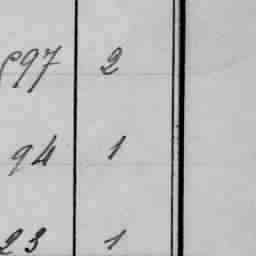 97 2
94 1
23 1